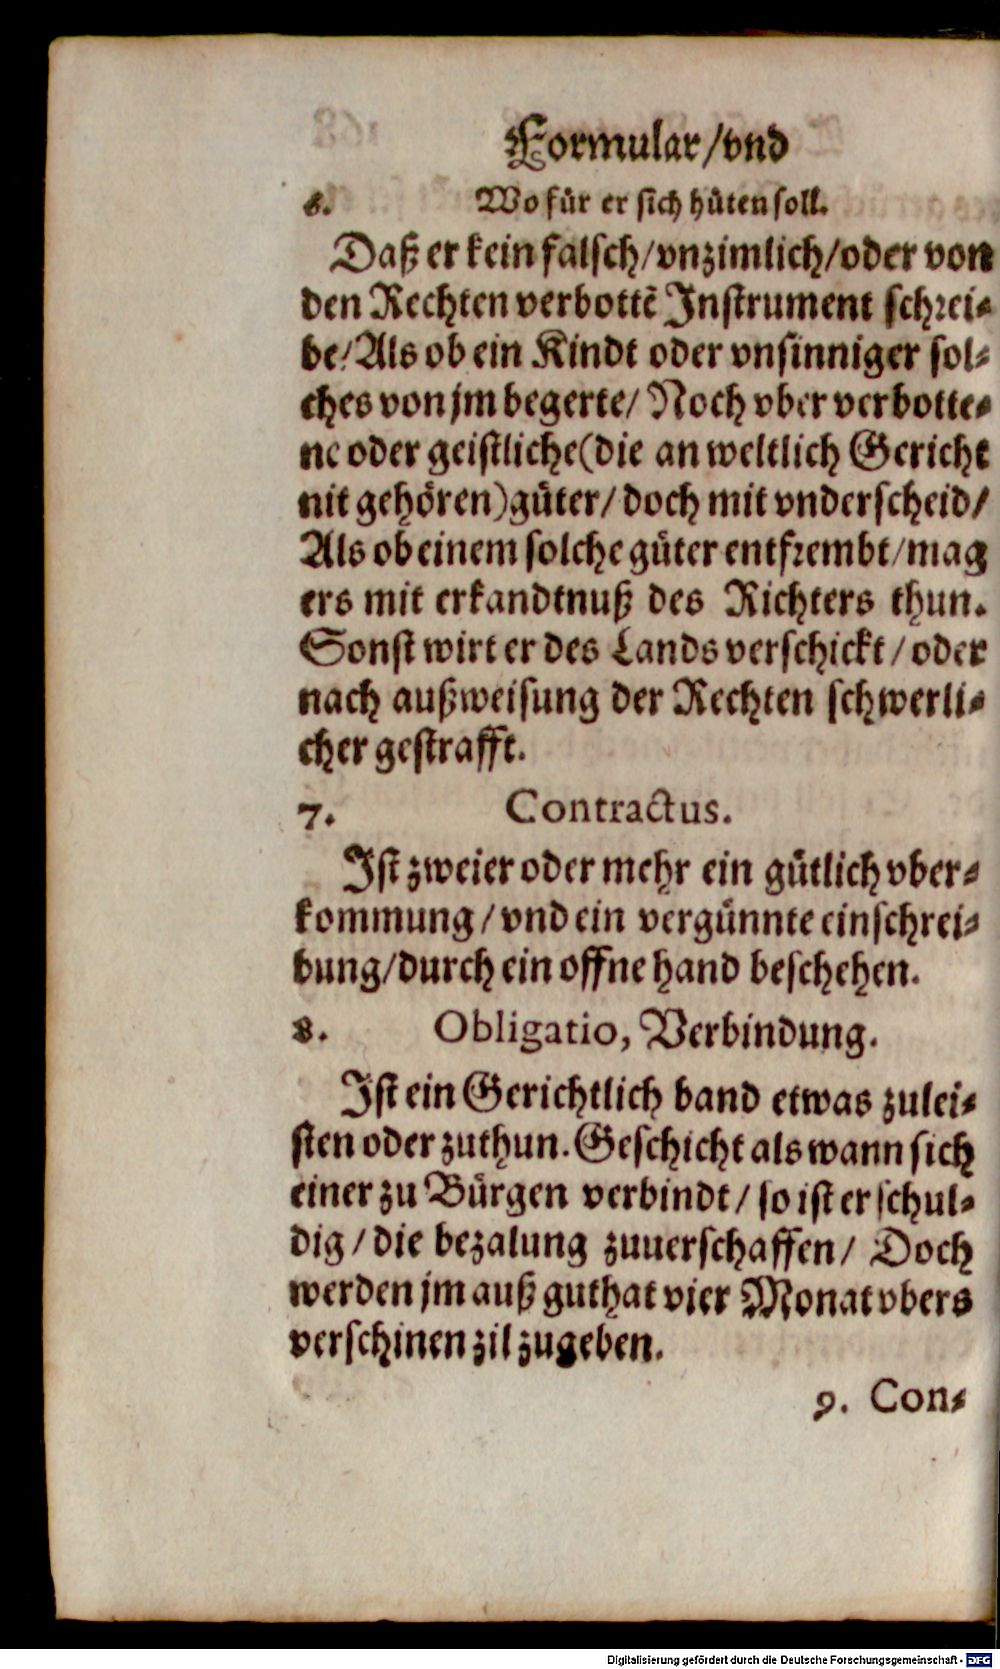 Formular/vnd
6. Wofür er sich hüten soll.
Daß er kein falsch/vnzimlich/oder von
den Rechten verbottē Instrument schrei-
be/Als ob ein Kindt oder vnsinniger sol-
ches von jm begerte/Noch vber verbotte-
ne oder geistliche(die an weltlich Gericht
nit gehören)güter/doch mit vnderscheid/
Als ob einem solche güter entfrembt/mag
ers mit erkandtnuß des Richters thun.
Sonst wirt er des Lands verschickt/oder
nach außweisung der Rechten schwerli-
cher gestrafft.
7. Contractus.
Ist zweier oder mehr ein gütlich vber-
kommung/vnd ein vergünnte einschrei-
bung/durch ein offne hand beschehen.
8. Obligatio, Verbindung.
Ist ein Gerichtlich band etwas zulei-
sten oder zuthun. Geschicht als wann sich
einer zu Bürgen verbindt/so ist er schul-
dig/die bezalung zuuerschaffen/Doch
werden jm auß guthat vier Monat vbers
verschinen zil zugeben.
9. Con-
Digitalisierung gefördert durch die Deutsche Forschungsgemeinschaft - DFG